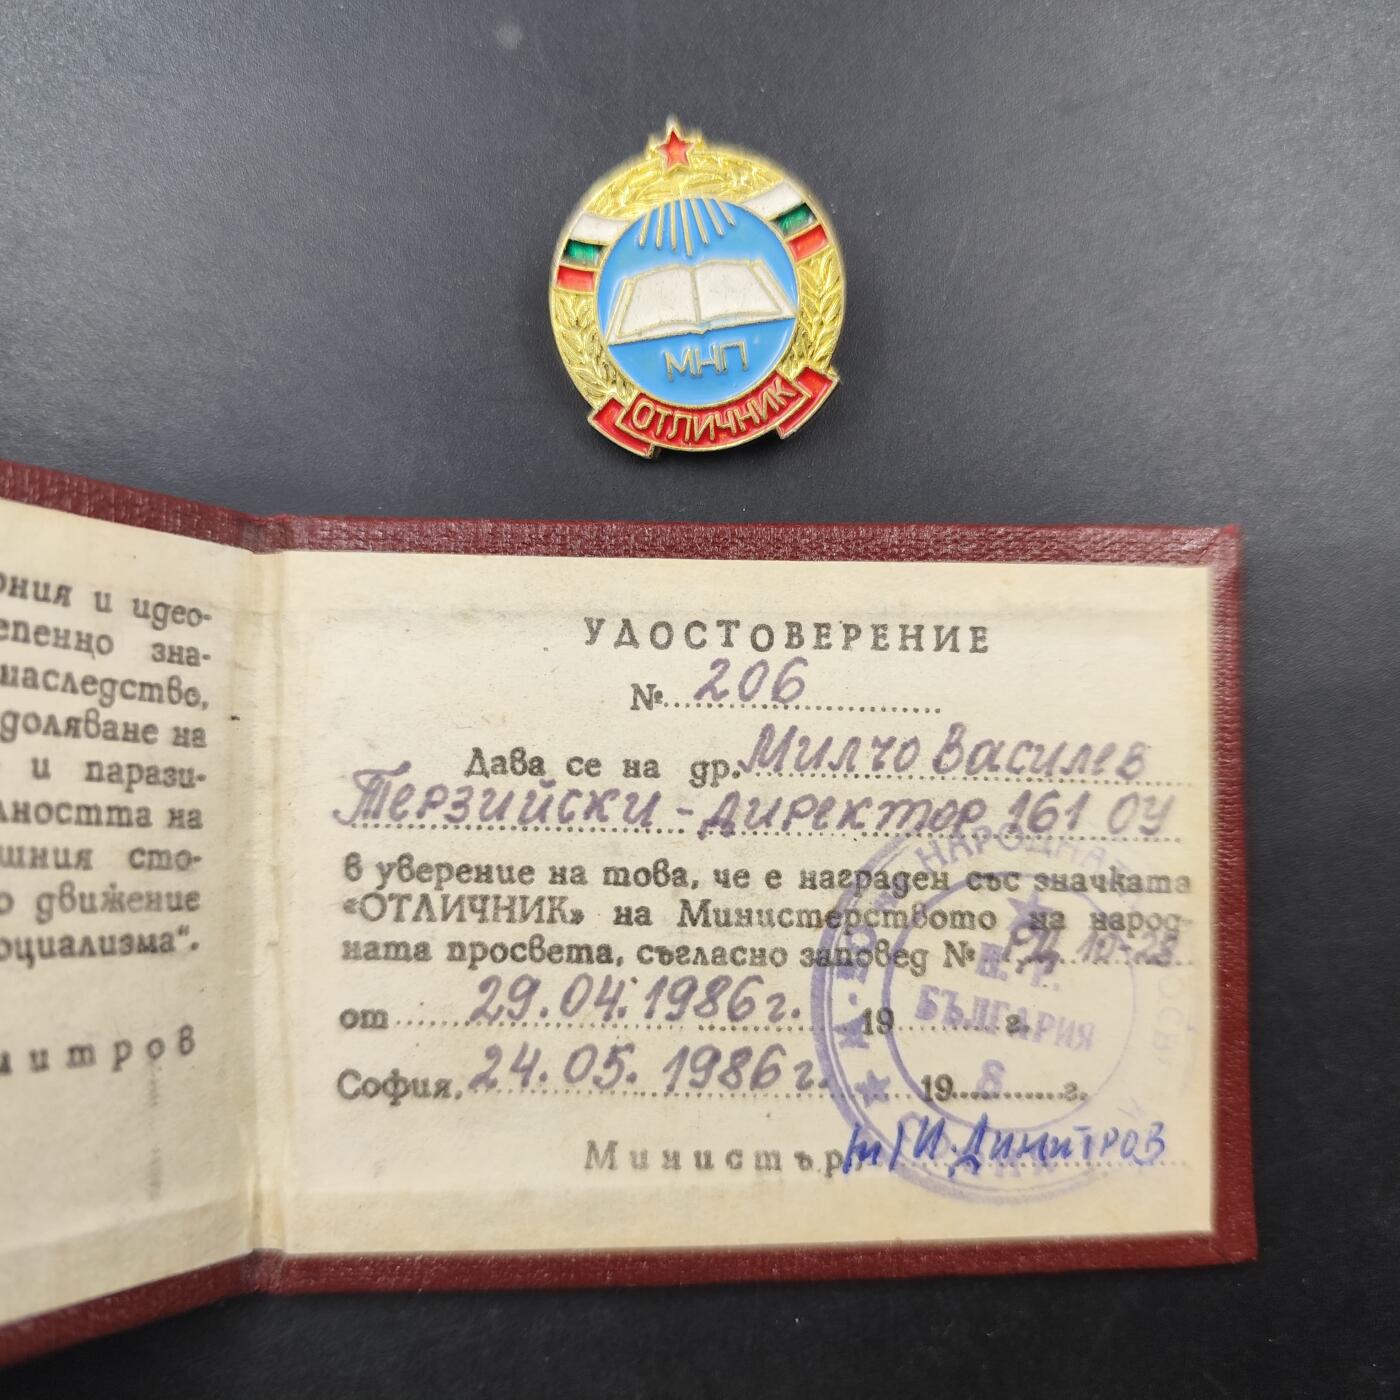 МНП
ОТЛИЧНИК
и идео-
зна-
наследство,
на
и парази-
на
сто-
движение
УДОСТОВЕРЕНИЕ
№ 206
Дава се на др. Милчо Василев
Терзийски - директор 161 ОУ
в уверение на това, че е награден със значката
«ОТЛИЧНИК» на Министерството на народ-
ната просвета, съгласно заповед № РД 10-28
от 29.04.1986 г. 19 г.
София, 24.05.1986 г. 19 г.
Министър: И. Димитров
НАРОДНАТА
Н. Р.
БЪЛГАРИЯ
8